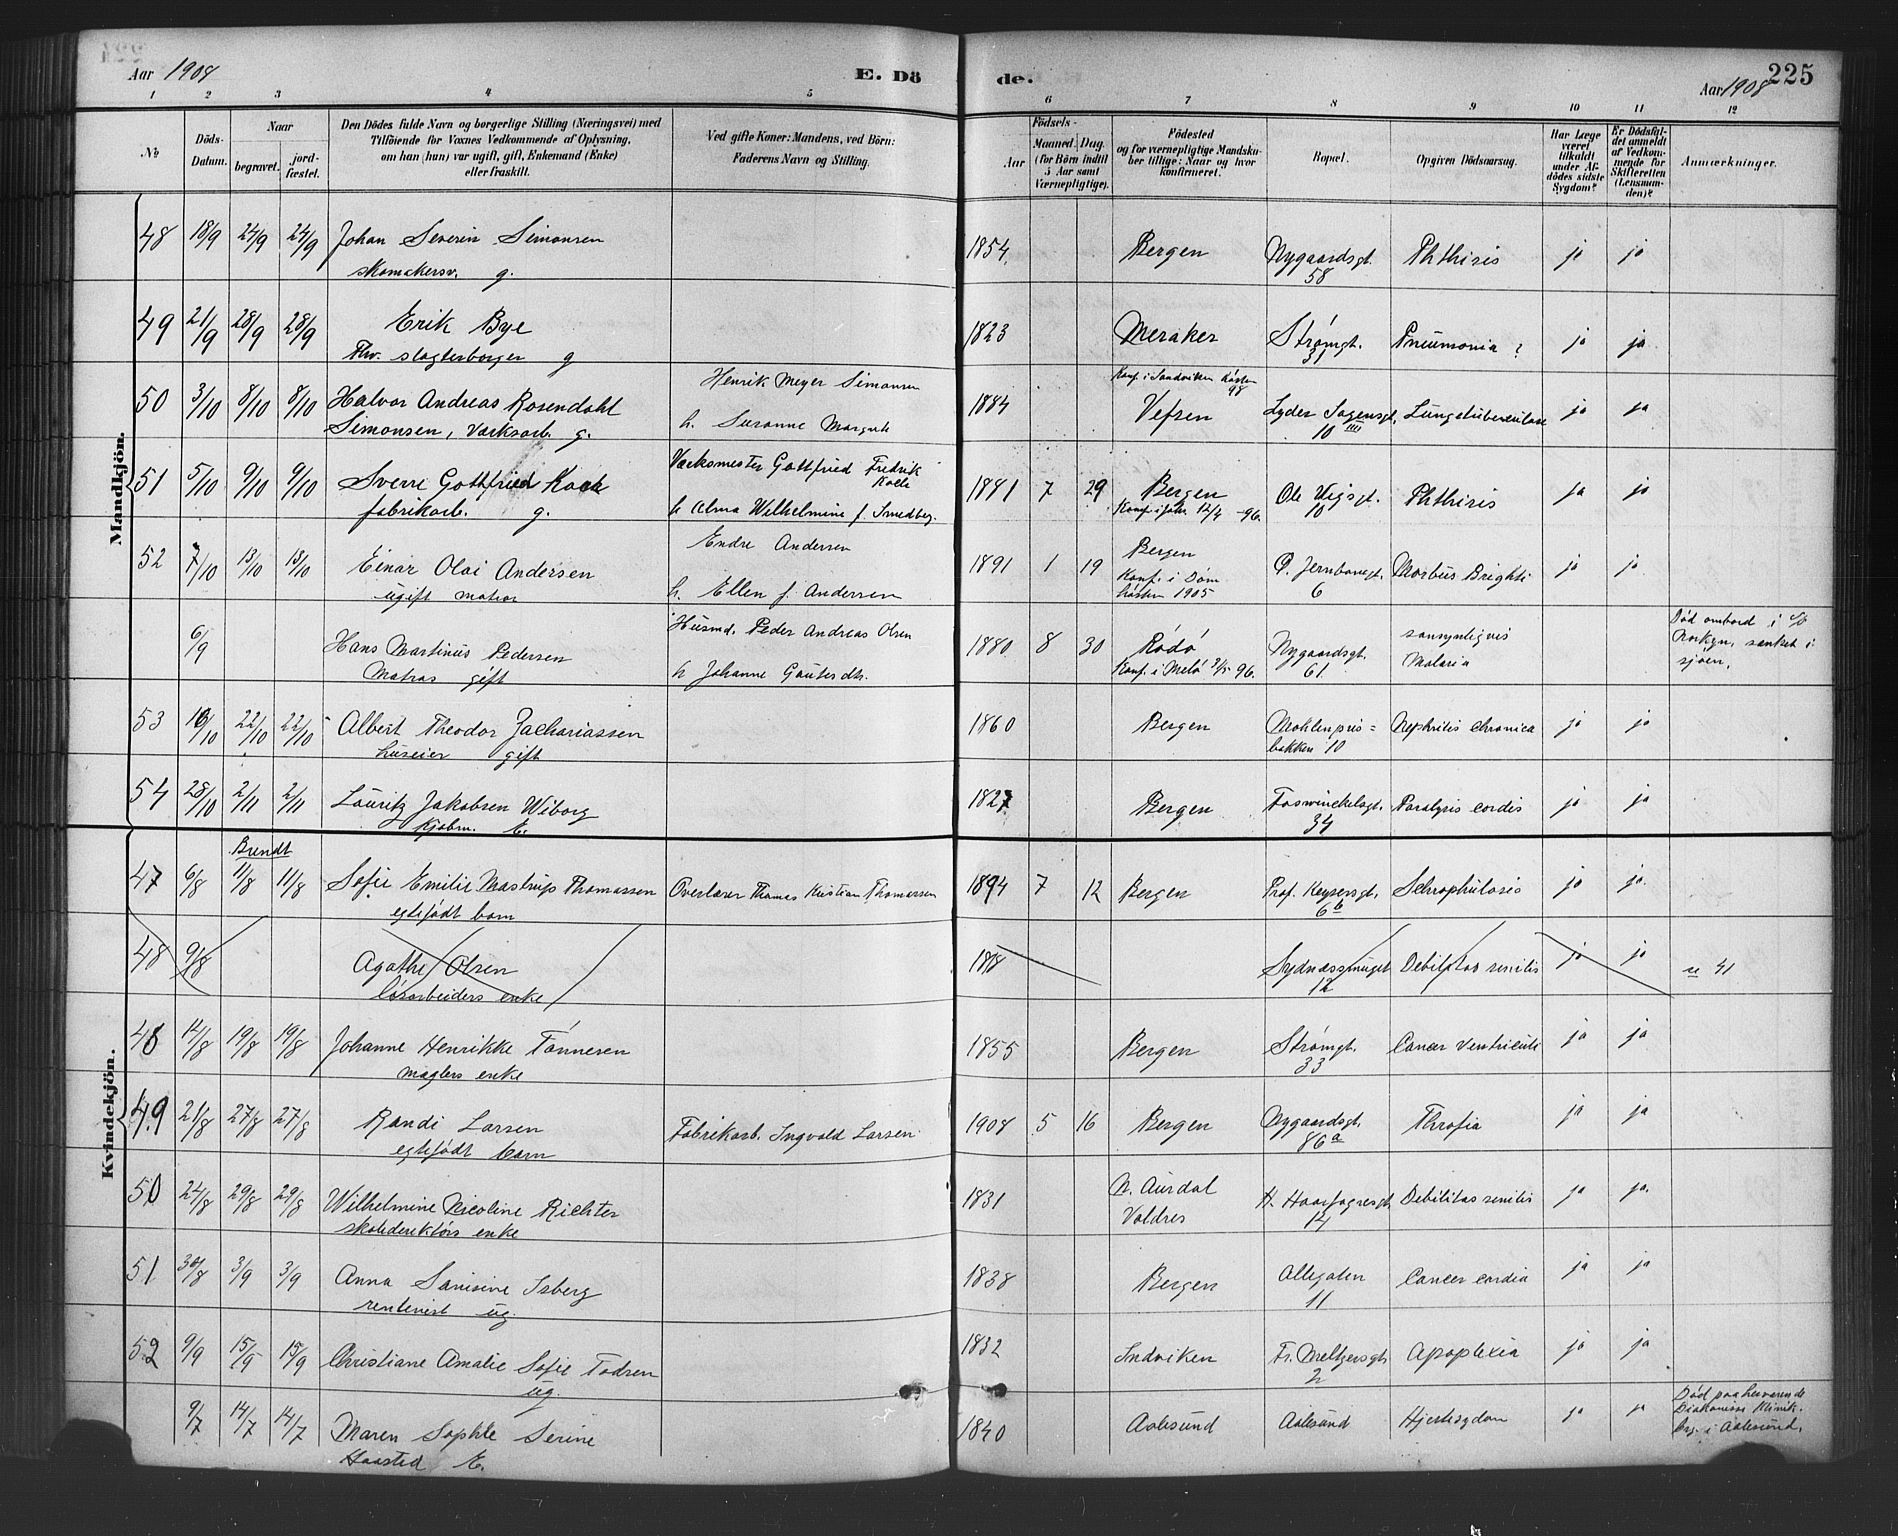 Aar 1908
E. Dö
de.
225
Aar 1908
1 2 3 4 5 6 7 8 9 10 11 12
No
Döds-
Datum.
Naar
begravet.
jord-
fæstet.
Den Dödes fulde Navn og borgerlige Stilling (Næringsvei) med
Tilföiende for Voxnes Vedkommende af Oplysning,
om han (hun) var ugift, gift, Enkemand (Enke)
eller fraskilt.
Ved gifte Koner: Mandens, ved Börn:
Faderens Navn og Stilling.
Födsels-
Aar
Maaned. Dag.
(for Börn indtil
5 Aar samt
Værnepligtige).
Födested
og for værnepligtige Mandska-
ber tillige: Naar og hvor
konfirmeret.
Bopæl.
Opgiven Dödsaarsag.
Har Læge
været
tilkaldt
under Af-
dödes sidste
Sygdom?
Er Dödsfal-
det anmeldt
af Vedkom-
mende for
Skifteretten
(Lensman-
den)?
Anmærkninger.
Mandkjön.
48 18/9 24/9 24/9 Johan Severin Simonsen 1854 Bergen Nygaardsgt. Phthisis ja ja
skomakersv. g. 58
49 21/9 28/9 28/9 Erik Bye 1823 Meraker Strømgt. Pneumonia ? ja ja
Fhv. slagterborger g 31
50 3/10 8/10 8/10 Halvor Andreas Rosendahl Henrik Meyer Simonsen 1884 Konf. i Sandviken høsten 98
Vefsen Lyder Sagensgt. Lungetuberculose ja ja
Simonsen, Værksarb. g. h. Susanne Margrete 10 III
51 5/10 9/10 9/10 Sverre Gottfried Værksmester Gottfried Fredrik 1881 7 29 Bergen Ole Vigsgt. Phthisis ja ja
fabrikarb. g. h Alma Wilhelmine f. Smedberg. Konf. i Joh. 12/4 -96. 10
52 7/10 13/10 13/10 Einar Olai Andersen Endre Andersen 1891 1 19 Bergen Ø. Jernbanegt. Morbus Brighti ja ja
ugift matros h. Ellen f. Andersen Konf. i Dom 6
høsten 1905
6/9 Hans Martinus Pedersen Husmd. Peder Andreas Olsen 1880 8 30 Rødø Nygaardsgt. sansynligvis ja ja Død ombord i S/S
Matros gift h Johanne Gautersdtr. Konf. i Melø 96. 61 Malaria sænket i
sjøen.
53 10/10 22/10 22/10 Albert Theodor Zachariassen 1860 Bergen Møhlenpris= Nephritis chronica ja ja
huseier gift bakken 10
54 28/10 2/11 2/11 Lauritz Jakobsen Wiborg 1827 Bergen Foswinckelsgt. Paralysis cordis ja ja
Kjøbm. E. 34
Kvindekjön.
Brendt
47 6/8 11/8 11/8 Sofie Emilie Mastrup Thomassen Overlærer Thomas Kristian Thomassen 1894 7 12 Bergen Prof. Keysersgt. Schrophulosis ja ja.
egtefødt barn 6b
48 9/8 Agathe Olsen 1818 Sydnæssmuget Debilitas senilis ja ja se 41
løsarbeiders enke 12
48 14/8 19/8 19/8 Johanne Henrikke Tønnesen 1855 Bergen Strømgt. Cancer Ventriculi ja ja
mæglers enke 33
49 21/8 27/8 27/8 Randi Larsen Fabrikarb. Ingvald Larsen 1908 5 16 Bergen Nygaardsgt. ja ja
egtefødt barn 86a
50 24/8 29/8 29/8 Wilhelmine Nicoline Richter 1831 N. Aurdal H. Haarfagresgt. Debilitas senilis ja ja.
skoledirektørs enke Valdres 14
51 30/8 3/9 3/9 Anna Isberg 1838 Bergen Allegaten Cancer cardia ja ja
rentenist ug. 11
52 9/9 15/9 15/9 Christiane Amalie Sofie Todsen 1832 Indviken Fr. Meltzersgt. Apoplexia ja ja
ug. 2
9/7 14/7 14/7 Maren Sophie Serine 1840 Aalesund Aalesund Hjertesygdom ja ja Død paa herværende
Haasted E. Diakonisse Klinik.
Begr. i Aalesund.